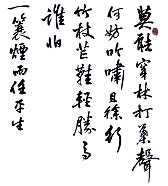 莫聽穿林打葉聲
何妨吟嘯且徐行
竹杖芒鞋輕勝馬
誰怕
一蓑煙雨任平生